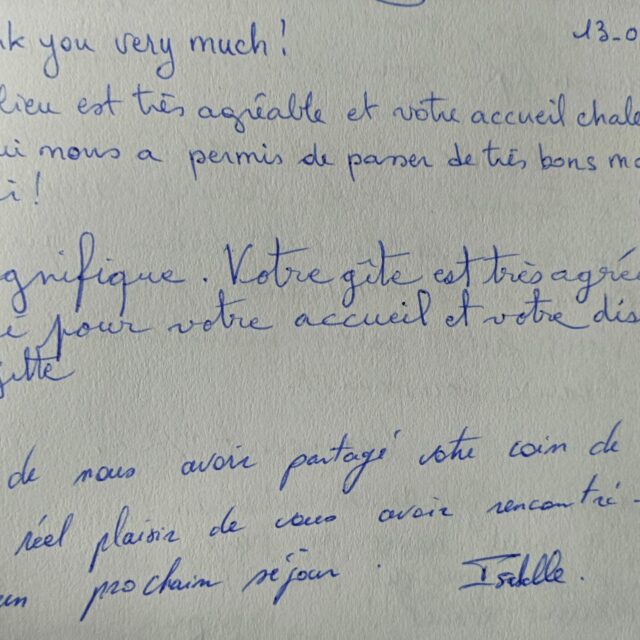 nk you very much! 13-0
lieu est très agréable et votre accueil chale
ui nous a permis de passer de très bons mo
i!
gnifique. Votre gîte est très agré
e pour votre accueil et votre dis
gitte
de nous avoir partagé votre coin de
réel plaisir de vous avoir rencontré-
un prochain séjour. Isabelle.